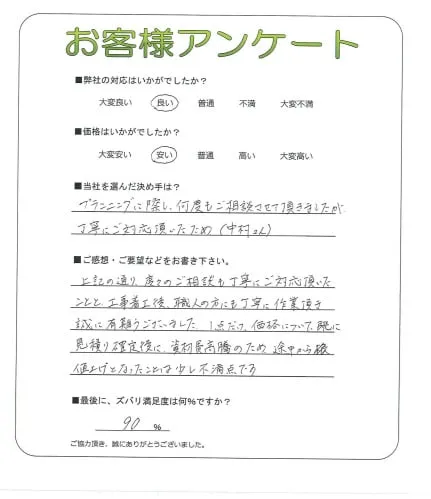 お客様アンケート
■弊社の対応はいかがでしたか？
大変良い 良い 普通 不満 大変不満
■価格はいかがでしたか？
大変安い 安い 普通 高い 大変高い
■当社を選んだ決め手は？
プランニングに際し、何度もご相談させて頂きましたが、
丁寧にご対応頂いたため（中村さん）
■ご感想・ご要望などをお書き下さい。
上記の通り、度々のご相談も丁寧にご対応頂いた
ことと、工事着工後、職人の方にも丁寧に作業頂き
誠に有難うございました。1点だけ、価格について、既に
見積り確定後に、資材費高騰のため、途中から
値上げとなったことは少し不満点です
■最後に、ズバリ満足度は何％ですか？
90 ％
ご協力頂き、誠にありがとうございました。